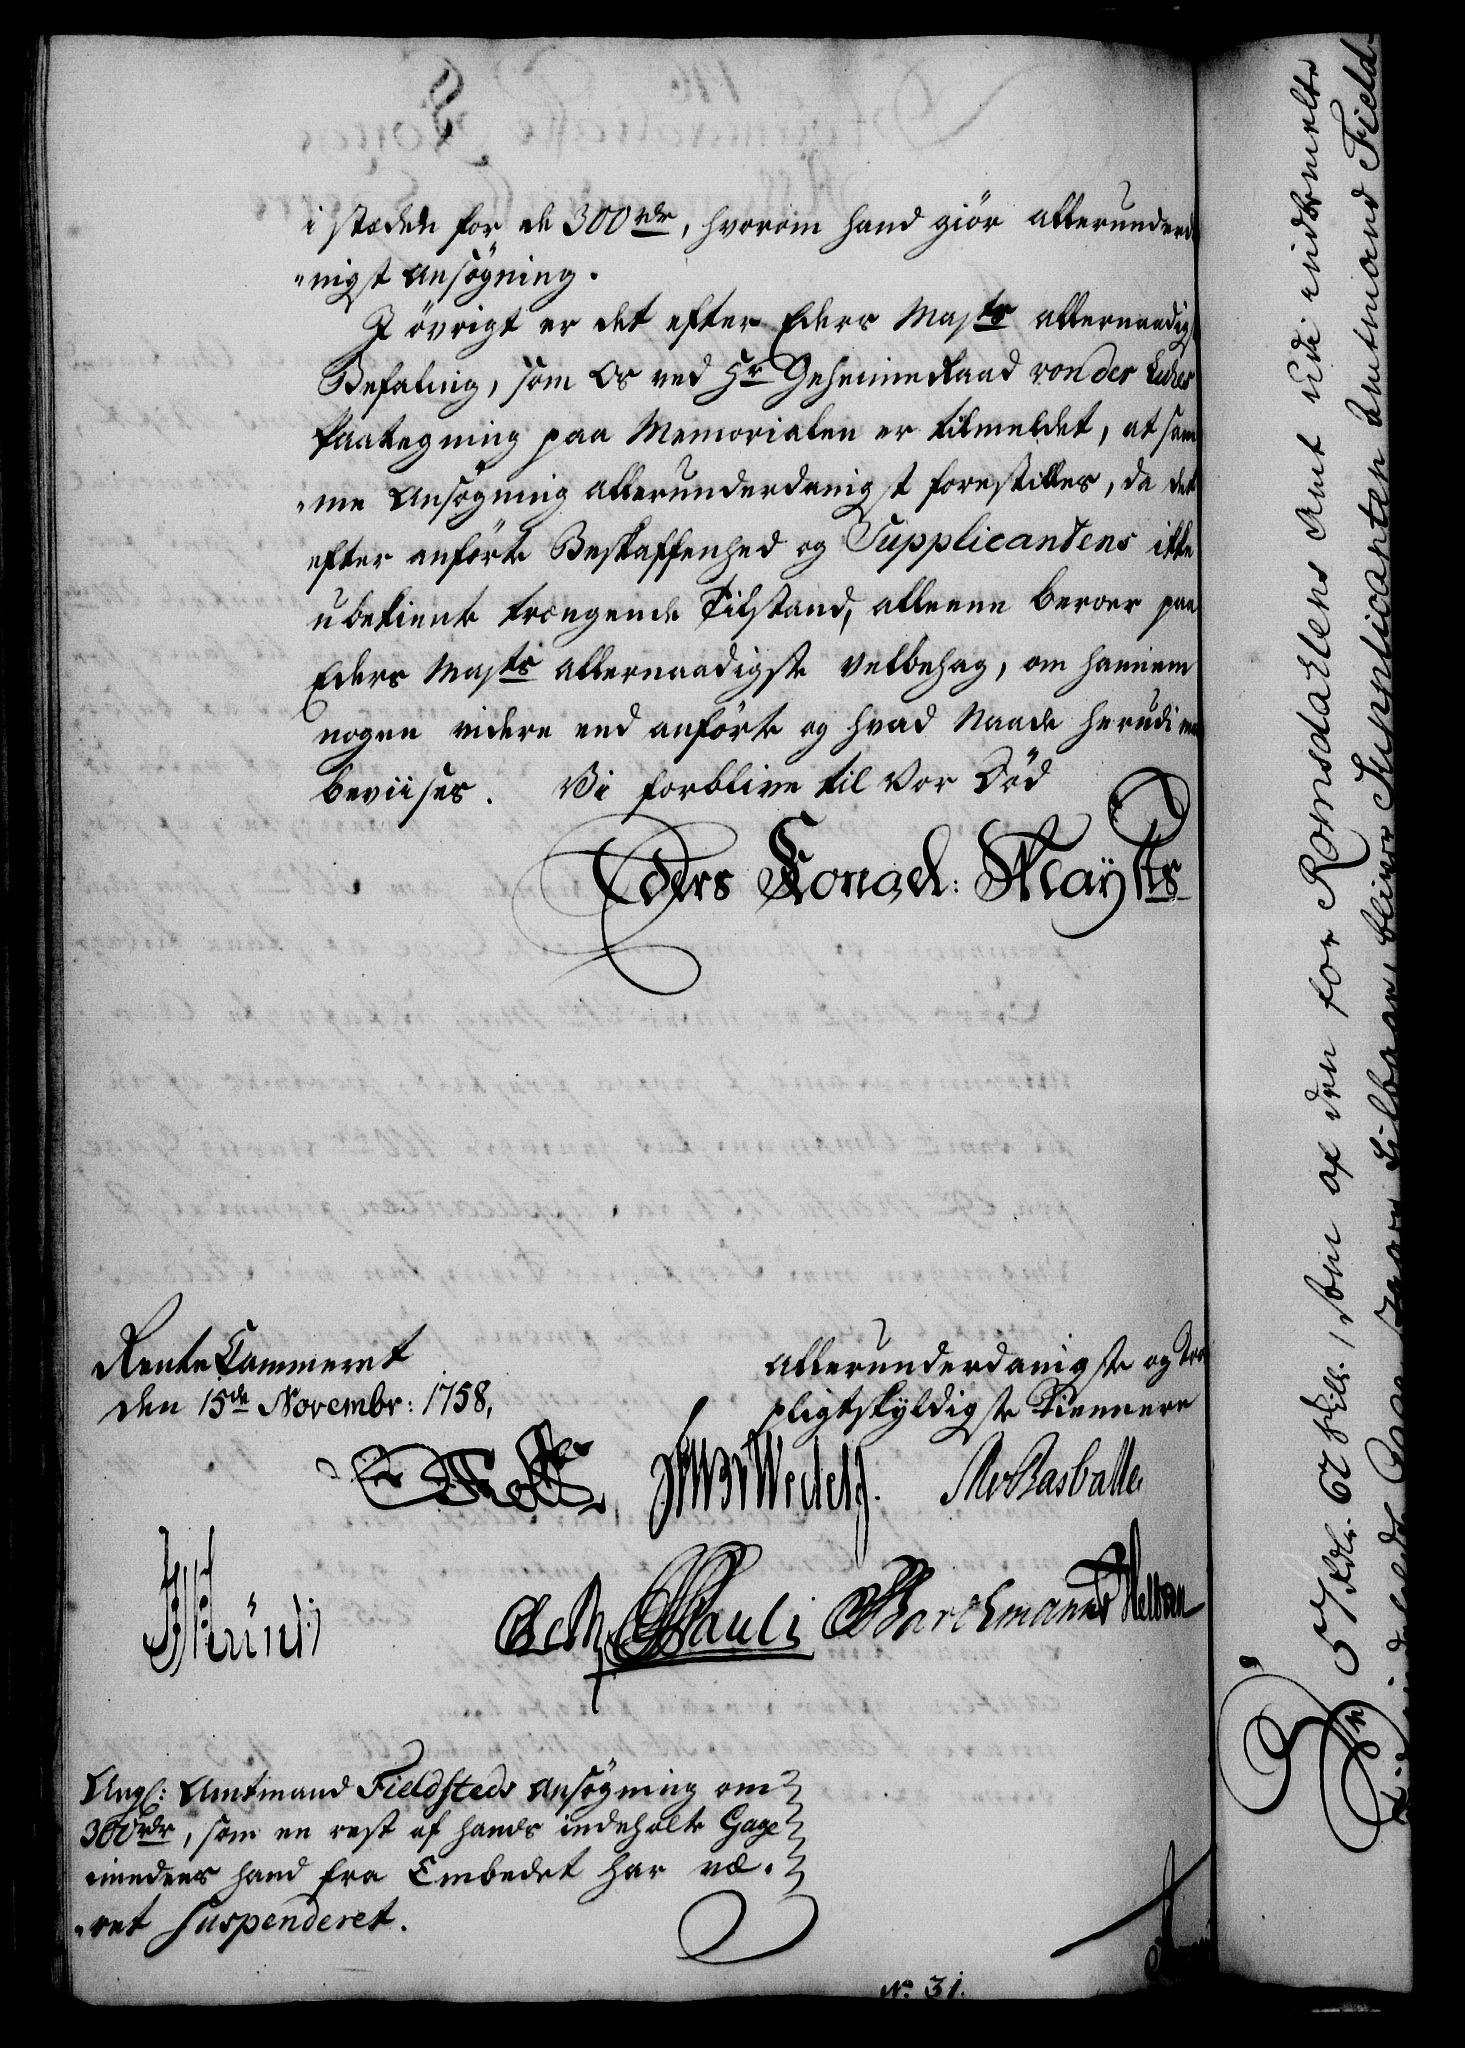 i stæden for de 300 rdr, hvorom hand giör allerunderd
"nigst Ansögning.
I övrigt er det efter Eders Majts allernaadigst
Befaling, som Os ved Hr Geheimeraad von der Lühes
Paategning paa Memorialen er tilmeldet, at sam
"me Ansögning allerunderdanigst forestilles, da det
efter anförte Beskaffenhed og Supplicantens ikke
ubekiendte trængende Tilstand, alleene beroer paa
Eders Majts allernaadigste Velbehag, om hannem
nogen videre end anförte og hvad Naade herudi maa
beviises. Vi forblive til Vor Död
Eders Kongel: Mayts
Rente Cammeret
den 15de Novembr: 1758,
allerunderdanigste og troe
pligtskyldigste Tiennere
Wedel
Rasballe
Pauli Barchmann
Ang: Amtmand Fieldsteds Ansögning om
300 rdr, som en rest af hands indeholte Gage
imedens hand fra Embedet har væ-
"ret Suspenderet.
No 31.
57 Rdlr. 62 Skill., som af den for Romsdahlens Amt udi indbemelte
Supplicanten Amtmand Field-